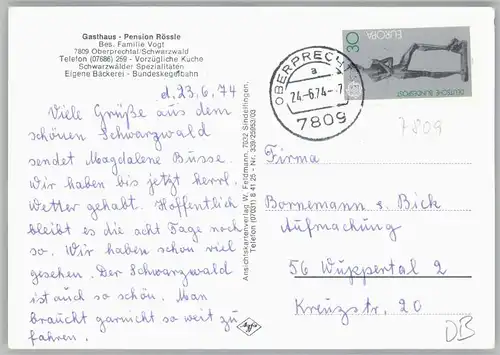 Gasthaus - Pension Rössle
Bes. Familie Vogt
7809 Oberprechtal/Schwarzwald
Telefon (07686) 259 - Vorzügliche Küche
Schwarzwälder Spezialitäten
Eigene Bäckerei - Bundeskegelbahn
d. 23.6.74
Viele Grüße aus dem
schönen Schwarzwald
sendet Magdalene Busse.
Wir haben bis jetzt herrl.
Wetter gehabt. Hoffentlich
bleibt es die acht Tage noch
so. Wir haben schon viel
gesehen. Der Schwarzwald
ist auch so schön. Man
braucht garnicht so weit zu
fahren.
Ansichtskartenverlag W. Feldmann, 7032 Sindelfingen,
Telefon (07031) 8 41 25 - Nr. 339/25953/03
Agfa
OBERPRECHTAL
a
24.-6.74.-7
7809
30
EUROPA
DEUTSCHE BUNDESPOST
7809
Firma
Bornemann & Bick
Aufmachung
56 Wuppertal 2
Kreuzstr. 20
DB